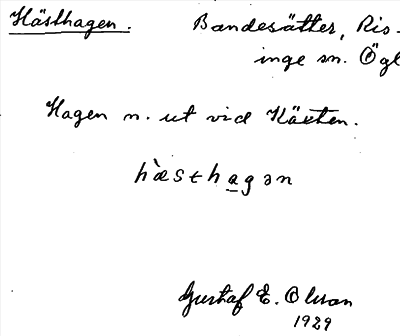 Hästhagen. Bandesätter, Ris-
inge sn. Ögl
Hagen n. ut vid
hæ̀stha̲gən
Gustaf E. Olsson
1929